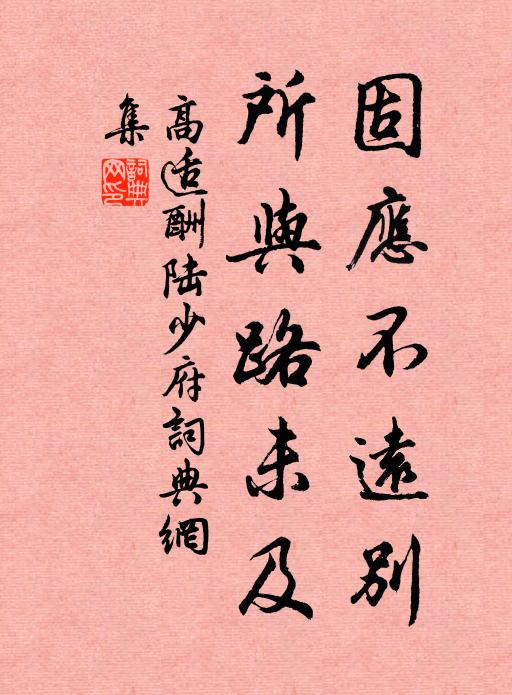 固應不遠別
所與路未及
高适酬陆少府詞典網
集
詞典
网印